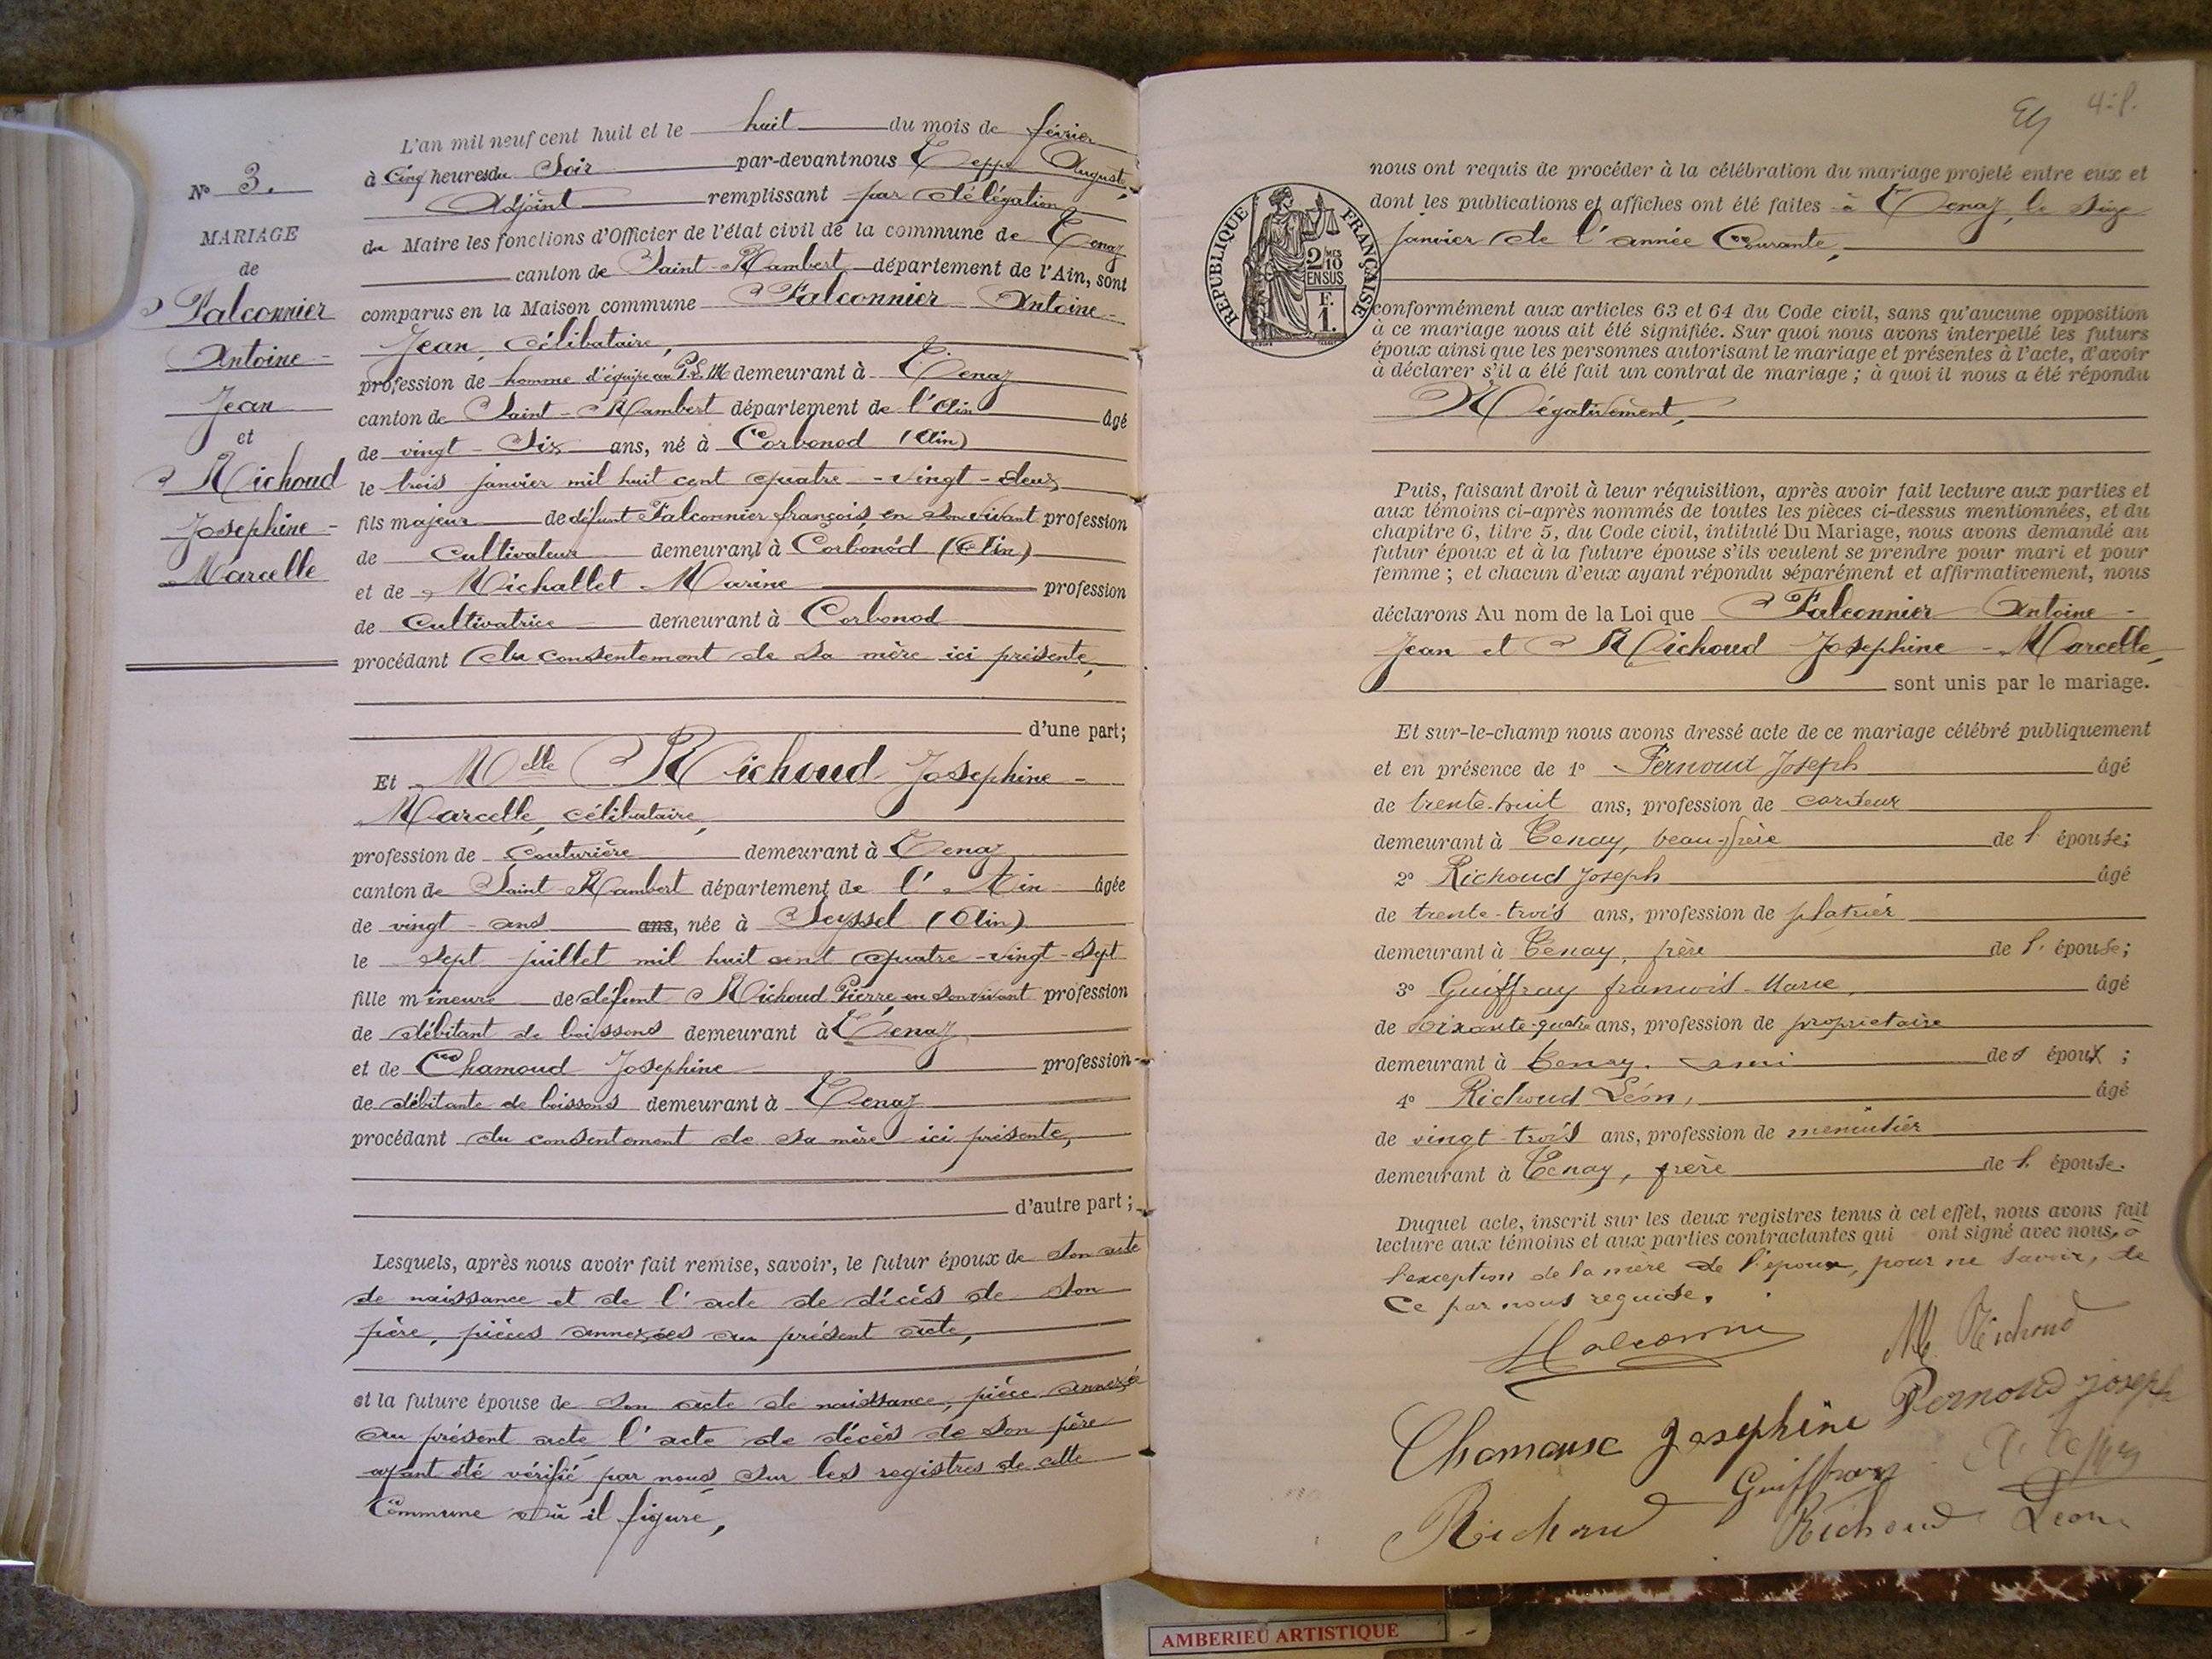 N° 3.
MARIAGE
de
Falconnier
Antoine-
Jean
et
Richoud
Josephine-
Marcelle
L'an mil neuf cent huit et le huit du mois de février
à Cinq heures du Soir par-devant nous Teppe Auguste,
Adjoint remplissant par délégation
du Maire les fonctions d'Officier de l'état civil de la commune de Tenay
canton de Saint-Rambert département de l'Ain, sont
comparus en la Maison commune Falconnier Antoine-
Jean, célibataire,
profession de homme d'équipe au P.L.M demeurant à Tenay
canton de Saint-Rambert département de l'Ain âgé
de vingt-six ans, né à Corbonod (Ain)
le trois janvier mil huit cent quatre-vingt-deux
fils majeur de défunt Falconnier françois, en son vivant profession
de cultivateur demeurant à Corbonod (Ain)
et de Michallet Marine profession
de Cultivatrice demeurant à Corbonod
procédant du consentement de sa mère ici présente,
d'une part;
Et Melle Richoud Josephine-
Marcelle, célibataire,
profession de Couturière demeurant à Tenay
canton de Saint-Rambert département de l'Ain âgée
de vingt-ans ans, née à Seyssel (Ain)
le sept juillet mil huit cent quatre-vingt-sept
fille mineure de défunt Richoud Pierre en son vivant profession
de débitant de boissons demeurant à Tenay
et de Chamoud Josephine profession
de débitante de boissons demeurant à Tenay
procédant du consentement de sa mère ici présente,
d'autre part;
Lesquels, après nous avoir fait remise, savoir, le futur époux de son acte
de naissance et de l'acte de décès de son
père, pièces annexées au présent acte,
et la future épouse de son acte de naissance, pièce annexée
au présent acte l'acte de décès de son père
ayant été vérifié par nous sur les registres de cette
Commune où il figure,
4. f.
REPUBLIQUE FRANÇAISE
2/10 MES
EN SUS
1 F.
nous ont requis de procéder à la célébration du mariage projeté entre eux et
dont les publications et affiches ont été faites à Tenay, le seize
janvier de l'année Courante,
conformément aux articles 63 et 64 du Code civil, sans qu'aucune opposition
à ce mariage nous ait été signifiée. Sur quoi nous avons interpellé les futurs
époux ainsi que les personnes autorisant le mariage et présentes à l'acte, d'avoir
à déclarer s'il a été fait un contrat de mariage ; à quoi il nous a été répondu
Négativement,
Puis, faisant droit à leur réquisition, après avoir fait lecture aux parties et
aux témoins ci-après nommés de toutes les pièces ci-dessus mentionnées, et du
chapitre 6, titre 5, du Code civil, intitulé Du Mariage, nous avons demandé au
futur époux et à la future épouse s'ils veulent se prendre pour mari et pour
femme ; et chacun d'eux ayant répondu séparément et affirmativement, nous
déclarons Au nom de la Loi que Falconnier Antoine-
Jean et Richoud Josephine-Marcelle,
sont unis par le mariage.
Et sur-le-champ nous avons dressé acte de ce mariage célébré publiquement
et en présence de 1° Pernoud Joseph âgé
de trente-huit ans, profession de cardeur
demeurant à Tenay, beau-frère de l'épouse;
2° Richoud Joseph âgé
de trente-trois ans, profession de platrier
demeurant à Tenay, frère de l'épouse;
3° Guiffray francois-Marie, âgé
de soixante-quatre ans, profession de proprietaire
demeurant à Tenay, ami des époux ;
4° Richoud Léon, âgé
de vingt-trois ans, profession de menuisier
demeurant à Tenay, frère de l'épouse.
Duquel acte, inscrit sur les deux registres tenus à cet effet, nous avons fait
lecture aux témoins et aux parties contractantes qui ont signé avec nous, à
l'exception de la mère de l'époux, pour ne savoir, de
ce par nous requise.
M. Richoud
Josephine Pernoud Joseph
Guiffray
Richoud Richoud Léon
AMBERIEU ARTISTIQUE